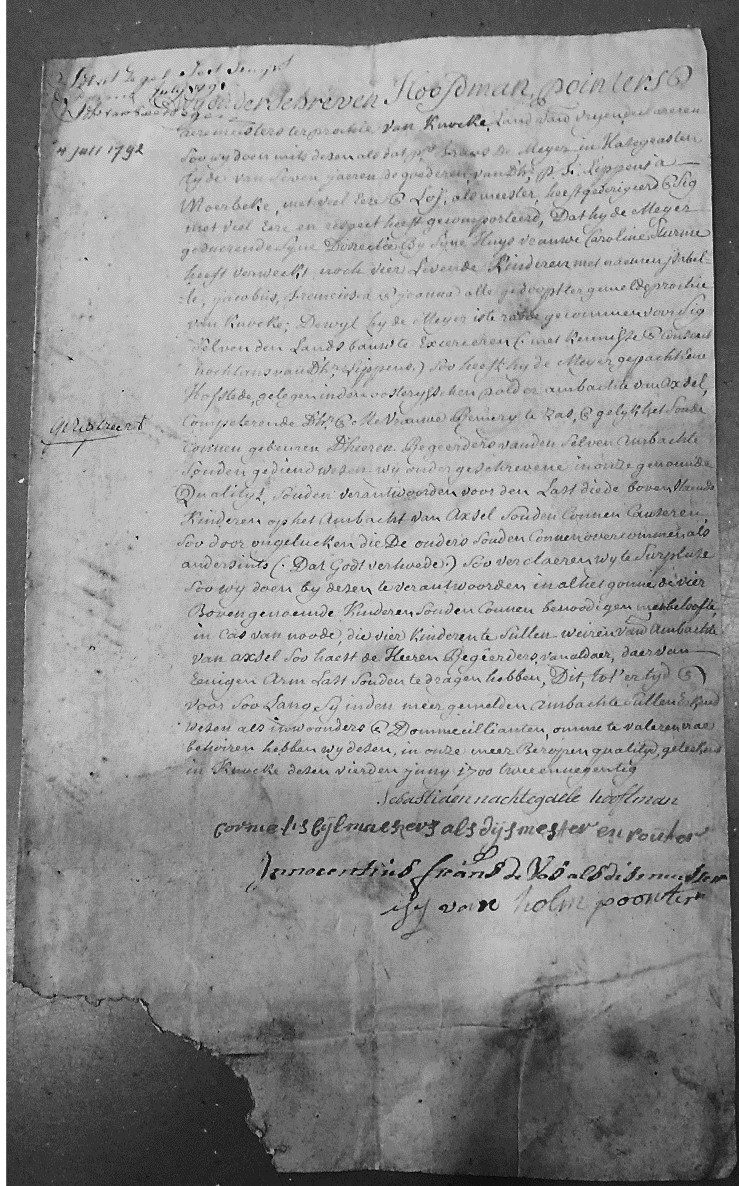 4 Juli 1792
Geregistreert
Wy onderschreven Hooftman, pointers &
disemeesters ter prochie van Knocke, Land vand vryen declareren
Soo wy doen mits desen als dat Sr frans De Meyer in
tyde van seven jaeren de goederen van Dhr P: F: Lippens à
Moerbeke, met veel Eere & Lof, als meester, heeft geregeert & sig
met veel Eere en respect heeft gecomporteerd, Dat hy de Meyer
geduerende syne Directie By syne Huys vrauwe Caroline Sturme
heeft verweckt noch vier Levende Kinderen met naemen Isabel-
le, jacobus, francies à & joanna alle gedoopt ter gemelde prochie
van Knocke; Dewyl hy de Meyer is te raede gecommen voor sig
selven den Landsbauw te Exerceren (: met kennisse & consent
nochtans van Dhr Lippens.) soo heeft hy de Meyer gepacht eene
Hofstede, gelegen in den oosterysschen polder ambachte van Axsel,
Competerende Dhr & Me Vrauwe Remery te Zas, & gelyk het soude
Connen gebeuren D'heeren Regeerders van den selven Ambachte
souden gediend wesen wy ondergeschrevene in onze genomide
Qualityt, souden verantwoorden voor den Last die de boven staende
Kinderen op het Ambacht van Axsel souden Connen Causeren
soo door ongelucken die De ouders souden Connen overcommen als
andersints (: Dat Godt verhoede.) Soo verclaeren wy te Surpluse
soo wy doen by desen te verantwoorden in al het gonne de vier
Bovengenoemde Kinderen souden Connen benoodigen met belofte
in cas van noode, die vier kinderen te sullen weiren van Ambachte
van axsel soo haest de Heeren Regeerders van aldaer, daer van
Eenigen Arm Last souden te dragen hebben, Dit, tot'er tyd &
voor soo Lang sy in den meer gemelden Ambachte sullen Erkend
wesen als inwoonders & Dommecillianten, omme te valeren naer
behoiren hebben wy desen, in onze meer Beropen qualityd, geteekend
in Knocke desen vierden juny 1700 twee en negentig
Sebastiaen nachtegaele hooftman
cornelis bylmackers als dysmester en
Innocentius frans de Vos als disemeester
van holm poonter